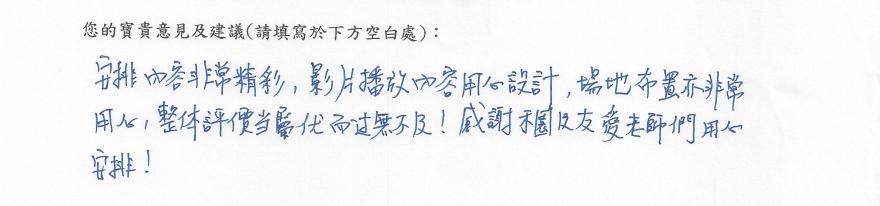 您的寶貴意見及建議(請填寫於下方空白處)：
安排內容非常精彩，影片播放內容用心設計，場地布置亦非常
用心，整体評價当屬优而过無不及！感謝禾園及友愛老師們用心
安排！